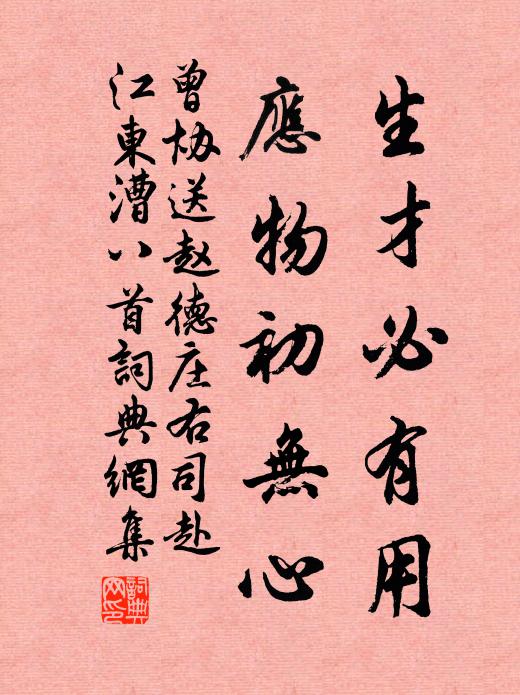 生才必有用
應物初無心
曾协送赵德庄右司赴
江東漕八首詞典網集
詞典
网印